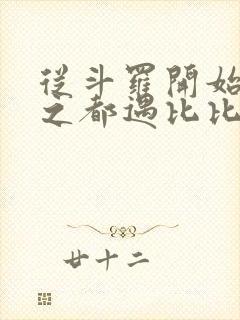 從斗羅開始
之都遇比比
廿十二